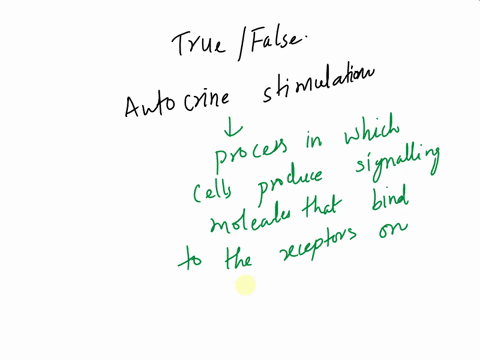 True / False.
Autocrine stimulation
process in which
cells produce signalling
molecules that bind
to the receptors on